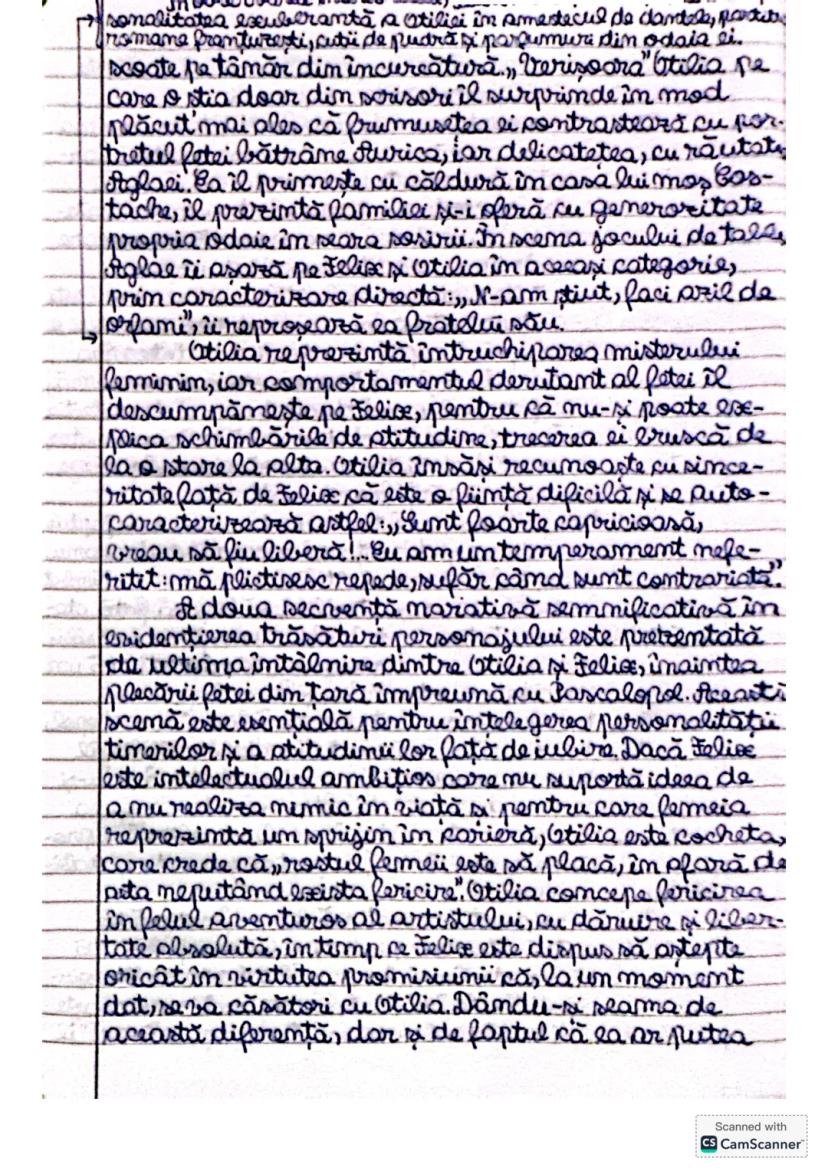 sonalitatea exuberantă a Otiliei în amestecul de dantele, partituri
romane franțurești, cutii de pudră și parfumuri din odaia ei.
scoate pe tânăr din încurcătură. „Verișoara" Otilia pe
care o știa doar din scrisori îl surprinde în mod
plăcut mai ales că frumusețea ei contrastează cu por-
tretul fetei bătrâne Aurica, iar delicatețea, cu răutate
Aglaei. Ea îl primește cu căldură în casa lui moș Cos-
tache, îl prezintă familiei și-i oferă cu generozitate
propria odaie în seara sosirii. În scena jocului de table,
Aglae îi așază pe Felix și Otilia în aceeași categorie,
prin caracterizare directă: „N-am știut, faci azil de
orfani", îi reproșează ea fratelui său.
Otilia reprezintă întruchiparea misterului
feminin, iar comportamentul derutant al fetei îl
descumpănește pe Felix, pentru că nu-și poate ex-
plica schimbările de atitudine, trecerea ei bruscă de
la o stare la alta. Otilia însăși recunoaște cu since-
ritate față de Felix că este o ființă dificilă și se auto-
caracterizează astfel: „Sunt foarte capricioasă,
vreau să fiu liberă!... Eu am un temperament nefe-
ricit: mă plictisesc repede, sufăr când sunt contrariată".
A doua secvență narativă semnificativă în
evidențierea trăsături personajului este pretzentată
de ultima întâlnire dintre Otilia și Felix, înaintea
plecării fetei din țară împreună cu Pascalopol. Această
scenă este esențială pentru înțelegerea personalității
tinerilor și a atitudinii lor față de iubire. Dacă Felix
este intelectualul ambițios care nu suportă ideea de
a nu realiza nimic în viață și pentru care femeia
reprezintă un sprijin în carieră, Otilia este cocheta,
care crede că „rostul femeii este să placă, în afară de
asta neputând exista fericire". Otilia concepe fericirea
în felul aventuros al artistului, cu dăruire și liber-
tate absolută, în timp ce Felix este dispus să aștepte
oricât în virtutea promisiunii că, la un moment
dat, se va căsători cu Otilia. Dându-și seama de
această diferență, dar și de faptul că ea ar putea
Scanned with
CS CamScanner